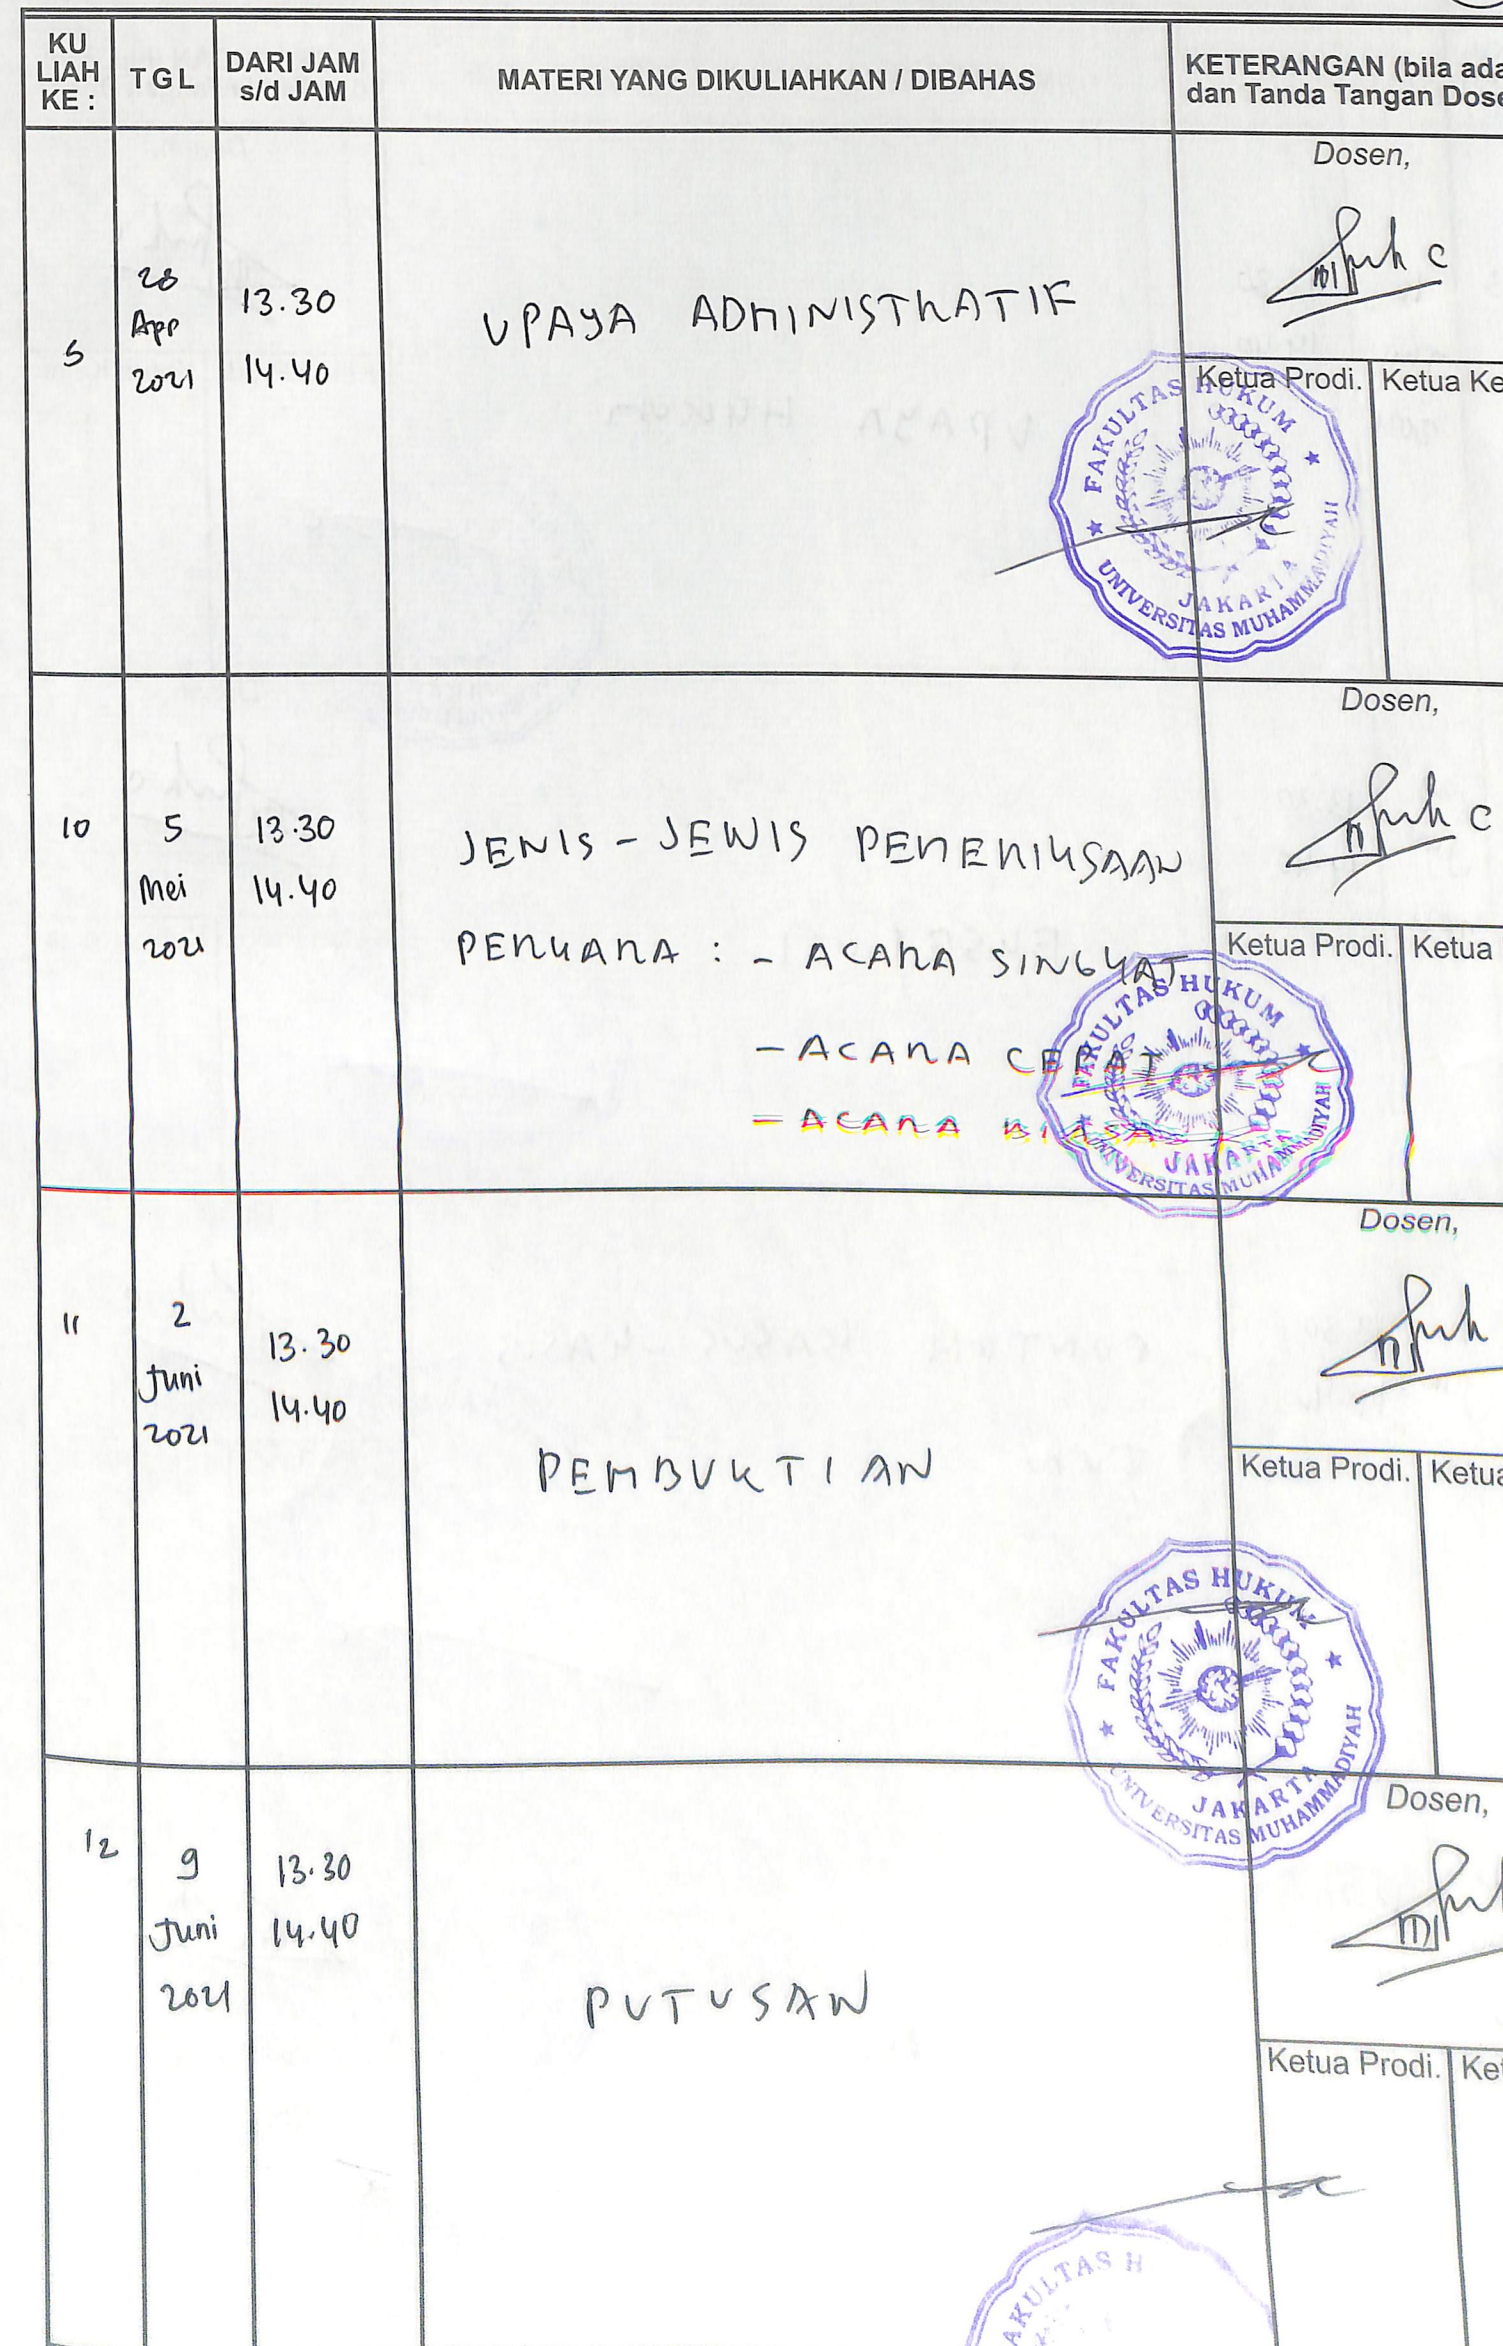 KU
LIAH
KE :
TGL
DARI JAM
s/d JAM
MATERI YANG DIKULIAHKAN / DIBAHAS
KETERANGAN (bila ada
dan Tanda Tangan Dose
Dosen,
28
Apr
2021
13.30
14.40
UPAYA ADMINISTRATIF
Ketua Prodi.
Ketua Ke
FAKULTAS HUKUM
JAKARTA
UNIVERSITAS MUHAMMADIYAH
Dosen,
10
5
Mei
2021
13.30
14.40
JENIS - JENIS PEMERIKSAAN
PERKARA : - ACARA SINGKAT
- ACARA CEPAT
- ACARA BIASA
Ketua Prodi.
Ketua
FAKULTAS HUKUM
JAKARTA
UNIVERSITAS MUHAMMADIYAH
Dosen,
11
2
Juni
2021
13.30
14.40
PEMBUKTIAN
Ketua Prodi.
Ketua
FAKULTAS HUKUM
JAKARTA
UNIVERSITAS MUHAMMADIYAH
Dosen,
12
9
Juni
2021
13.30
14.40
PUTUSAN
Ketua Prodi.
Ket
AKULTAS H